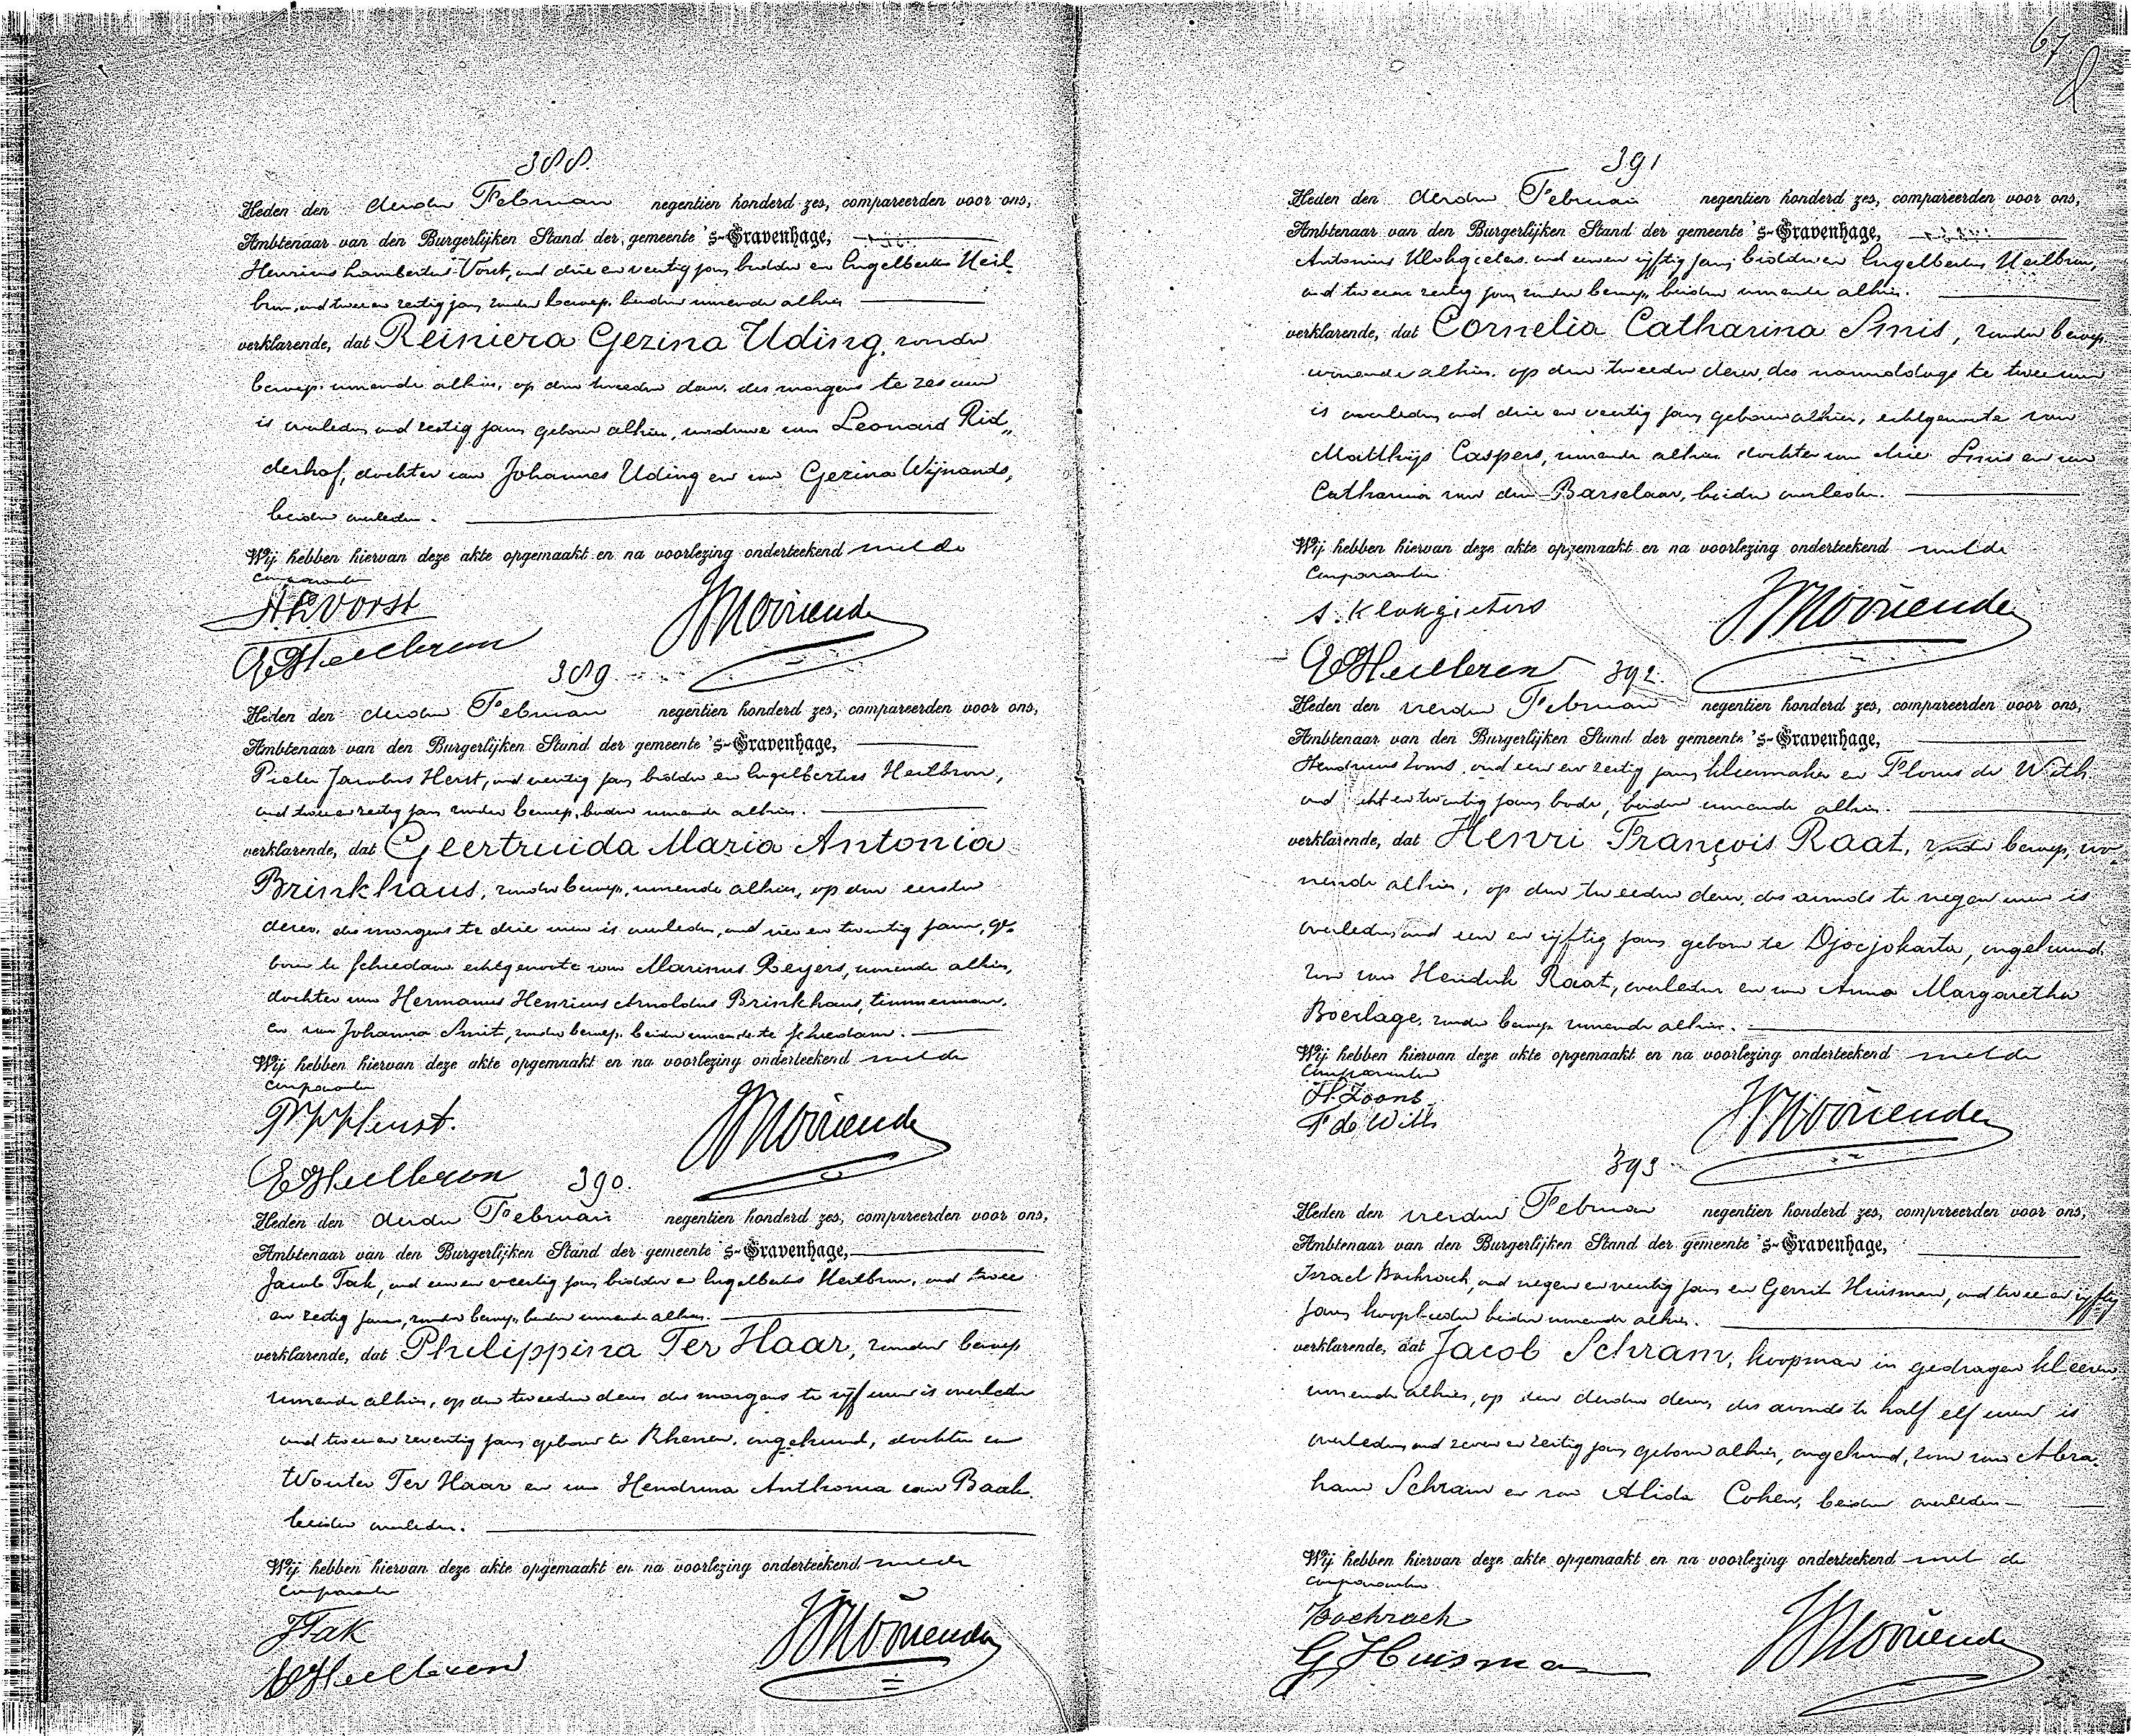 388.
Heden den derden Februari negentien honderd zes, compareerden voor ons,
Ambtenaar van den Burgerlijken Stand der gemeente 's-Gravenhage,
Henricus Lambertus Vorst, oud drie en veertig jaar, bidder en Engelbertus Heil-
bron, oud twee en zestig jaar, zonder beroep, beiden wonende alhier
verklarende, dat Reiniera Gezina Uding, zonder
beroep, wonende alhier, op den tweeden dezer, des morgens te zes uur
is overleden, oud zestig jaar, geboren alhier, weduwe van Leonard Rid„
derhof, dochter van Johannes Uding en van Gezina Wijnands,
beiden overleden.
Wij hebben hiervan deze akte opgemaakt en na voorlezing onderteekend met de
Comparanten
HLVorst
EHeilbron
389
Heden den derden Februari negentien honderd zes, compareerden voor ons,
Ambtenaar van den Burgerlijken Stand der gemeente 's-Gravenhage,
Pieter Jacobus Herst, oud veertig jaar, bidder en Engelbertus Heilbron,
oud twee en zestig jaar, zonder beroep, beiden wonende alhier.
verklarende, dat Geertruida Maria Antonia
Brinkhaus, zonder beroep, wonende alhier, op den eersten
dezer, des morgens te drie uur is overleden, oud en twintig jaar, ge-
boren te Schiedam echtgenoote van Marinus Reyers, wonende alhier,
dochter van Hermanus Henricus Arnoldus Brinkhaus, timmerman,
en van Johanna Smit, zonder beroep, beiden wonende te Schiedam.
Wij hebben hiervan deze akte opgemaakt en na voorlezing onderteekend met de
Comparanten
EHeilbron
390.
Heden den derden Februari negentien honderd zes, compareerden voor ons,
Ambtenaar van den Burgerlijken Stand der gemeente 's-Gravenhage,
Jacob Tak, oud een en veertig jaar, bidder en Engelbertus Heilbron, oud twee
en zestig jaar, zonder beroep, beiden wonende alhier.
verklarende, dat Philippina Ter Haar, zonder beroep
wonende alhier, op den tweeden dezer des morgens te vijf uur is overleden
oud twee en zeventig jaar, geboren te Rhenen, ongehuwd, dochter van
Wouter Ter Haar en van Hendrina Anthonia van Baak,
beiden overleden.
Wij hebben hiervan deze akte opgemaakt en na voorlezing onderteekend met de
Comparanten
JTak
EHeilbron
67
391
Heden den derden Februari negentien honderd zes, compareerden voor ons,
Ambtenaar van den Burgerlijken Stand der gemeente 's-Gravenhage,
Antonius Klokgieters, oud en vijftig jaar, bidder en Engelbertus Heilbron,
oud twee en zestig jaar, zonder beroep, beiden wonende alhier.
verklarende, dat Cornelia Catharina Smis, zonder beroep,
wonende alhier, op den tweeden dezer, des namiddags te twee uur
is overleden, oud drie en veertig jaar, geboren alhier, echtgenoote van
Matthijs Caspers, wonende alhier, dochter van Smis en van
Catharina van den Barselaar, beiden overleden.
Wij hebben hiervan deze akte opgemaakt en na voorlezing onderteekend met de
Comparanten
A. Klokgieters
EHeilbron
392.
Heden den vierden Februari negentien honderd zes, compareerden voor ons,
Ambtenaar van den Burgerlijken Stand der gemeente 's-Gravenhage,
Henricus Zoons, oud een en zestig jaar, kleermaker en Floris de With
oud acht en twintig jaar, bode, beiden wonende alhier.
verklarende, dat Henri François Raat, zonder beroep, wo-
nende alhier, op den tweeden dezer, des avonds te negen uur is
overleden, oud een en vijftig jaar, geboren te Djocjokarta, ongehuwd,
zoon van Hendrik Raat, overleden en van Anna Margaretha
Boerlage, zonder beroep wonende alhier.
Wij hebben hiervan deze akte opgemaakt en na voorlezing onderteekend met de
Comparanten
H. Zoons
F de With
393
Heden den vierden Februari negentien honderd zes, compareerden voor ons,
Ambtenaar van den Burgerlijken Stand der gemeente 's-Gravenhage,
Israel Bachrach, oud negen en veertig jaar en Gerrit Huisman, oud twee en vijftig
jaar, kooplieden beiden wonende alhier.
verklarende, dat Jacob Schram, koopman in gedragen kleeren
wonende alhier, op den derden dezer, des avonds te half elf uur is
overleden, oud zeven en zestig jaar, geboren alhier, ongehuwd, zoon van Abra-
ham Schram en van Alida Cohen, beiden overleden
Wij hebben hiervan deze akte opgemaakt en na voorlezing onderteekend met de
comparanten
Bachrach
G. Huisman